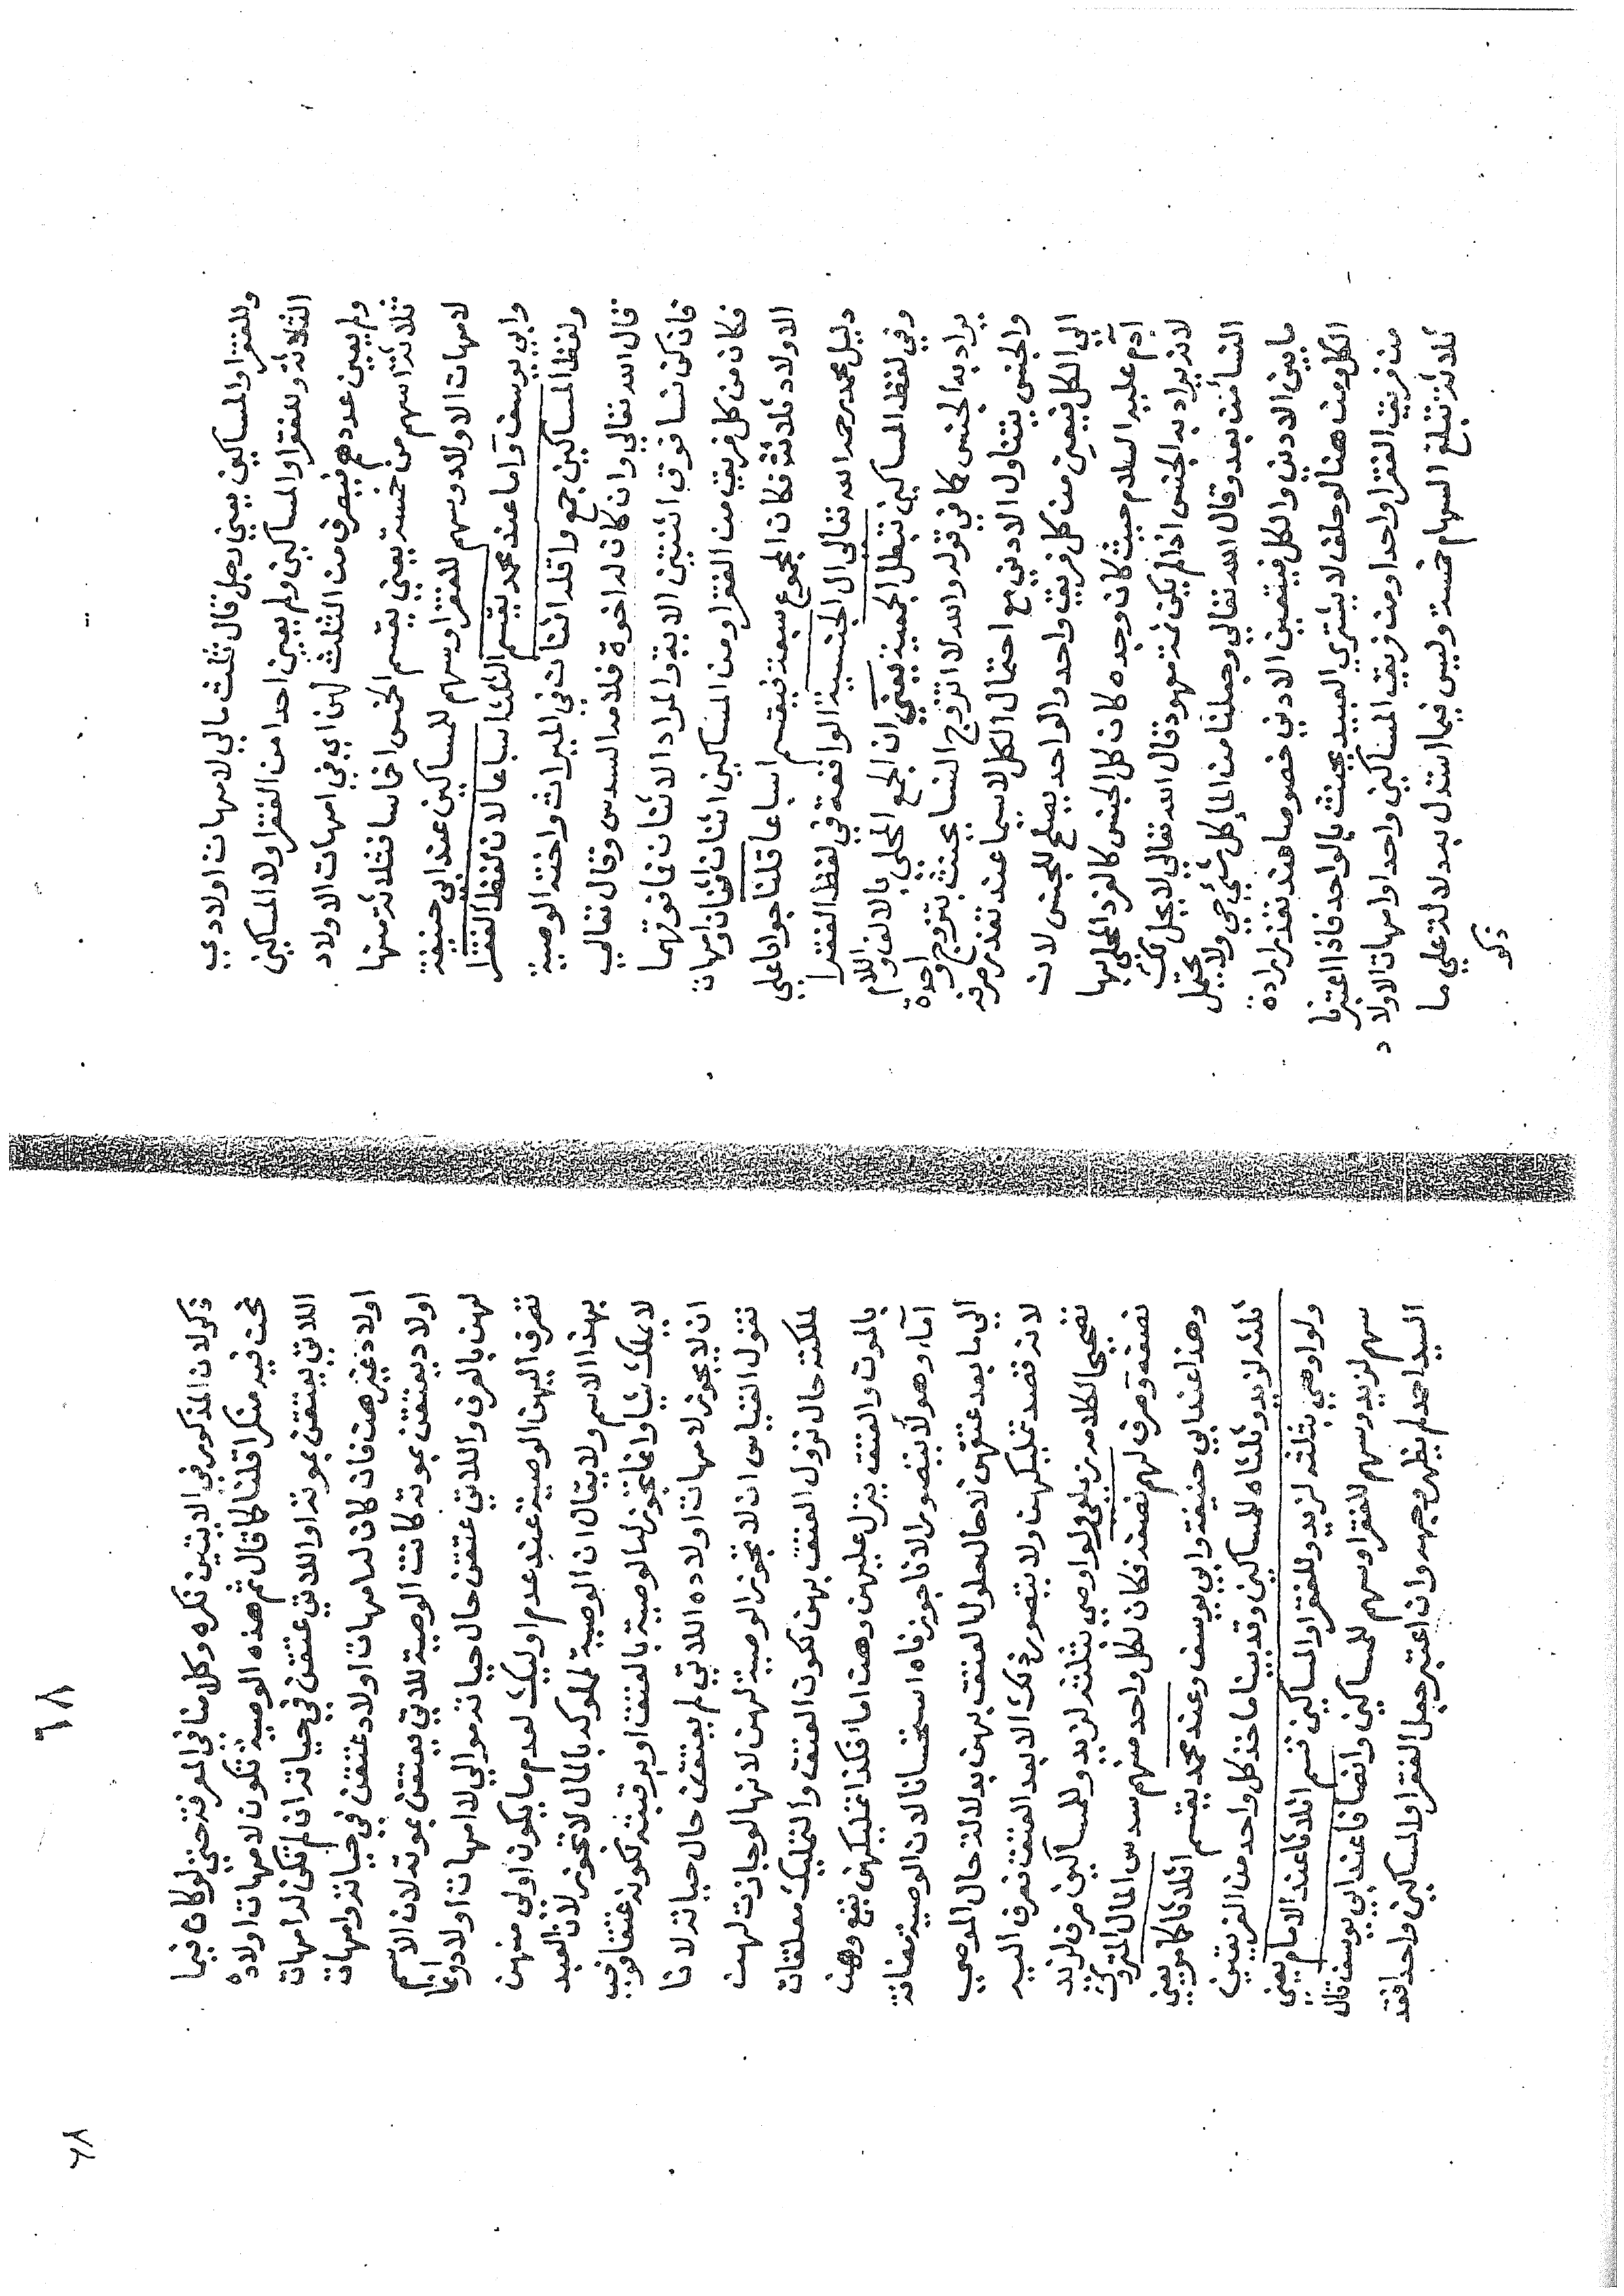 وللفقرا والمساكين يعني رجل قال ثلث مالي لامهات اولادي
الثلاثة وللفقرا والمساكين ولم يعين احدا من الفقرا ولا المساكين
ولم يعين عددهم فيصرف من الثلث لهن اي في امهات الاولاد
ثلاثة اسهم من خمسة يعني يقسم الخمس اخماسا فثلاثة منها
لامهات الاولاد وسهم للفقرا وسهم للمساكين عند ابي حنيفة
وابي يوسف واما عند محمد يقسم الثلث اسباعا لان لفظ الفقرا
ولفظ المساكين جمع واقله اثنان في الميراث واخته الوصية
قال الله تعالي وان كان له اخوة فلامه السدس وقال تعالي
فان كن نسا فوق اثنتين الاية والمراد الاثنان فما فوقهما
فكان من كل فريق من الفقرا ومن المساكين اثنان اثنان وامهات
الاولاد ثلاثة فكان المجموع سبعة فيقسم اسباعا قلنا جوابا علي
دليل محمد رحمه الله تعالى ال الجنسية الواقعة في لفظ الفقرا
وفي لفظ المساكين تبطل الجمعية يعني ان الجمع المحلي بالالف واللام
يراد به الجنس كما في قوله والله لا اتزوج النسا يحنث بتزوج واحدة
والجنس يتناول الادني مع احتمال الكل لاسيما عند تعذر صرفه
الي الكل فيعتبر من كل فريق واحد والواحد يصلح للجنس لان
آدم عليه السلام حيث كان وحده كان كل الجنس كالفرد المحلي بها
لانه يراد به الجنس اذا لم يكن ثمة معهود قال الله تعالي لا يحل لك
النسا من بعد وقال الله تعالي وجعلنا من الما كل شيئ حي ولا يحتمل
ما بين الادني والكل فيتعين الادني خصوصا عند تعذر ارادة
الكل ومن هنا لو حلف لا يشتري العبيد يحنث بالواحد فاذا اعتبرنا
من فريق الفقرا واحدا ومن فريق المساكين واحدا وامهات الاولاد
ثلاثة تبلغ السهام خمسة وليس فيما استدل به دلالة علي ما
ذكر
٦٨
٦٨
ذكر لان المذكور في الايتين نكرة وكلامنا في المعرفة حتي لو كان فيما
نحن فيه منكرا قلنا كما قال ثم هذه الوصية تكون لامهات اولاده
اللاتي يعتقن بموته او اللاتي عتقن في حياته ان لم تكن له امهات
اولاد غيرهن فان كان له امهات اولاد عتقن في حياته وامهات
اولاد يعتقن بموته كانت الوصية للاتي يعتقن بموته لان الاسم
لهن بالعرف واللاتي عتقن حال حياته موالي لا امهات اولاد وانما
تصرف اليهن الوصية عند عدم اوليك لعدم ما يكون اولي منهن
بهذا الاسم ولا يقال ان الوصية لمملوكه بالمال لا تجوز لان العبد
لا يملك شيا وانما تجوز له الوصية بالعتق او برقبته لكونه عتقا فوجب
ان لا يجوز لامهات اولاده اللاتي لم يعتقن حال حياته لانا
نقول القياس ان لا تجوز الوصية لهن لانها لو جازت لهن
لملكته حال نزول العتق بهن لكون العتق والتمليك معلقات
بالموت والعتق ينزل عليهن وهن اما فكذا تمليكهن يقع وهن
آماء وهو لا يتصور الا انا جوزناه استحسانا لان الوصية مضافة
الي ما بعد عتقهن لا حال حلول العتق بهن بدلالة حال الموصي
لانه قصد تمليكهن ولا يتصور ذلك الا بعد العتق تصرف اليه
تصحيحا لكلامه زيلعي ولو اوصي بثلثه لزيد وللمساكين صرف لزيد
نصفه وصرف لهم نصفه فكان لكل واحد منهم سدس المال المتروك
وهذا عند ابي حنيفة وابي يوسف وعند محمد يقسم اثلاثا كما مر يعني
ثلثه لزيد وثلثاه للمساكين وقد بينا ماخذ كل واحد من الفريقين
ولو اوصي بثلثه لزيد وللفقرا والمساكين قسم اثلاثا عند الامام يعني
سهم لزيد وسهم للفقرا وسهم للمساكين وانصافا عند ابي يوسف قال
السيد احمد لم يظهر وجهه وان اعتبر جعل الفقرا والمساكين واحدا فقد